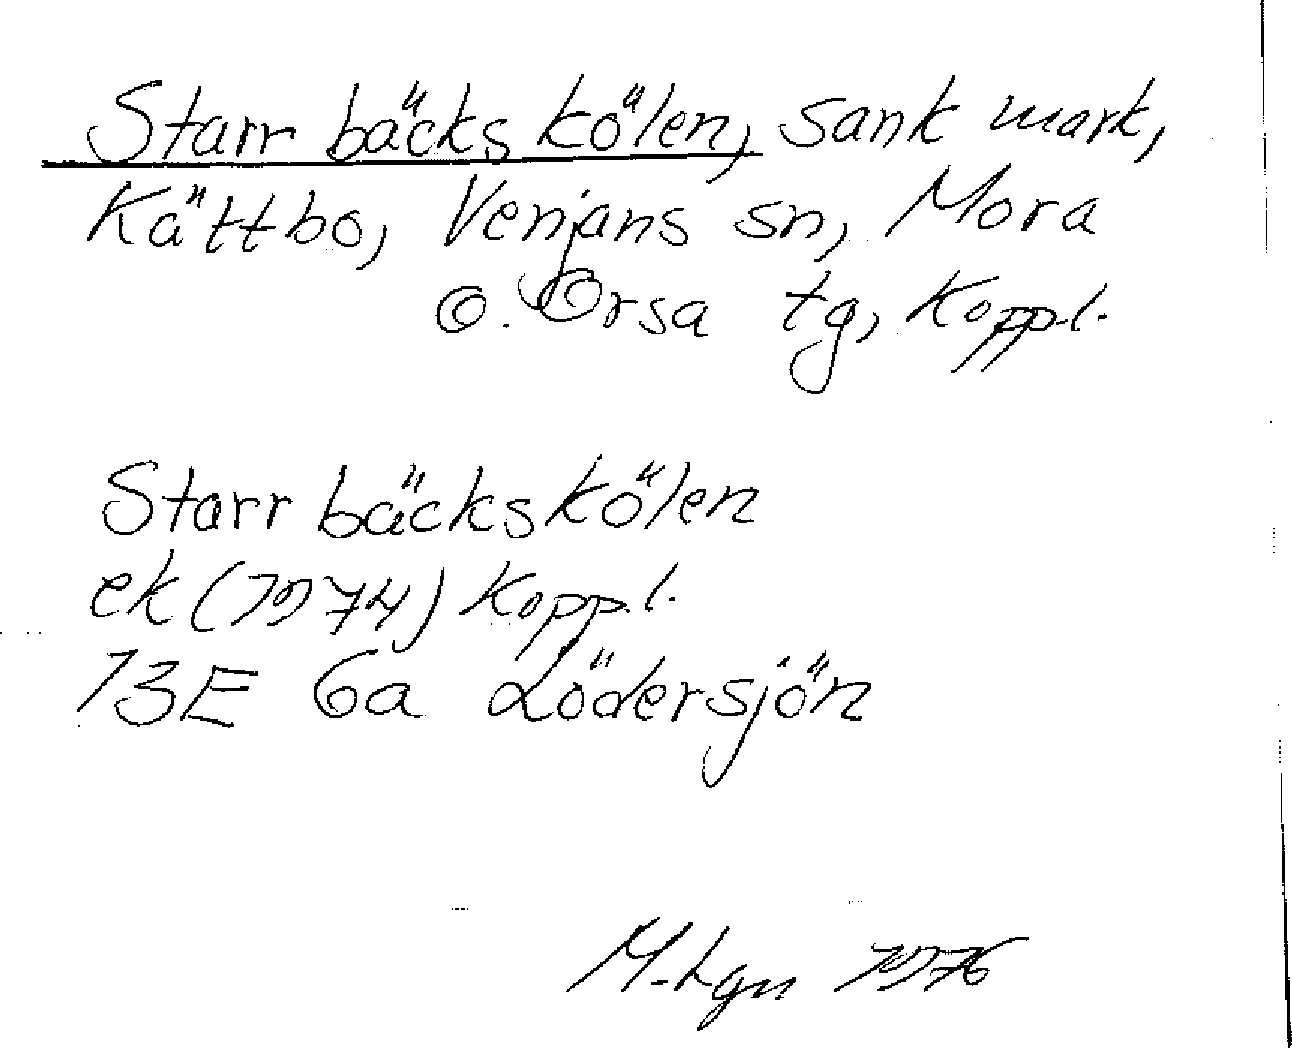 Starrbäckskölen, sank mark,
Kättbo, Venjans sn, Mora
o. Orsa tg, Koppl.
Starrbäckskölen
ek (1974) Koppl.
13E 6a Lödersjön
M-Lgn 1976